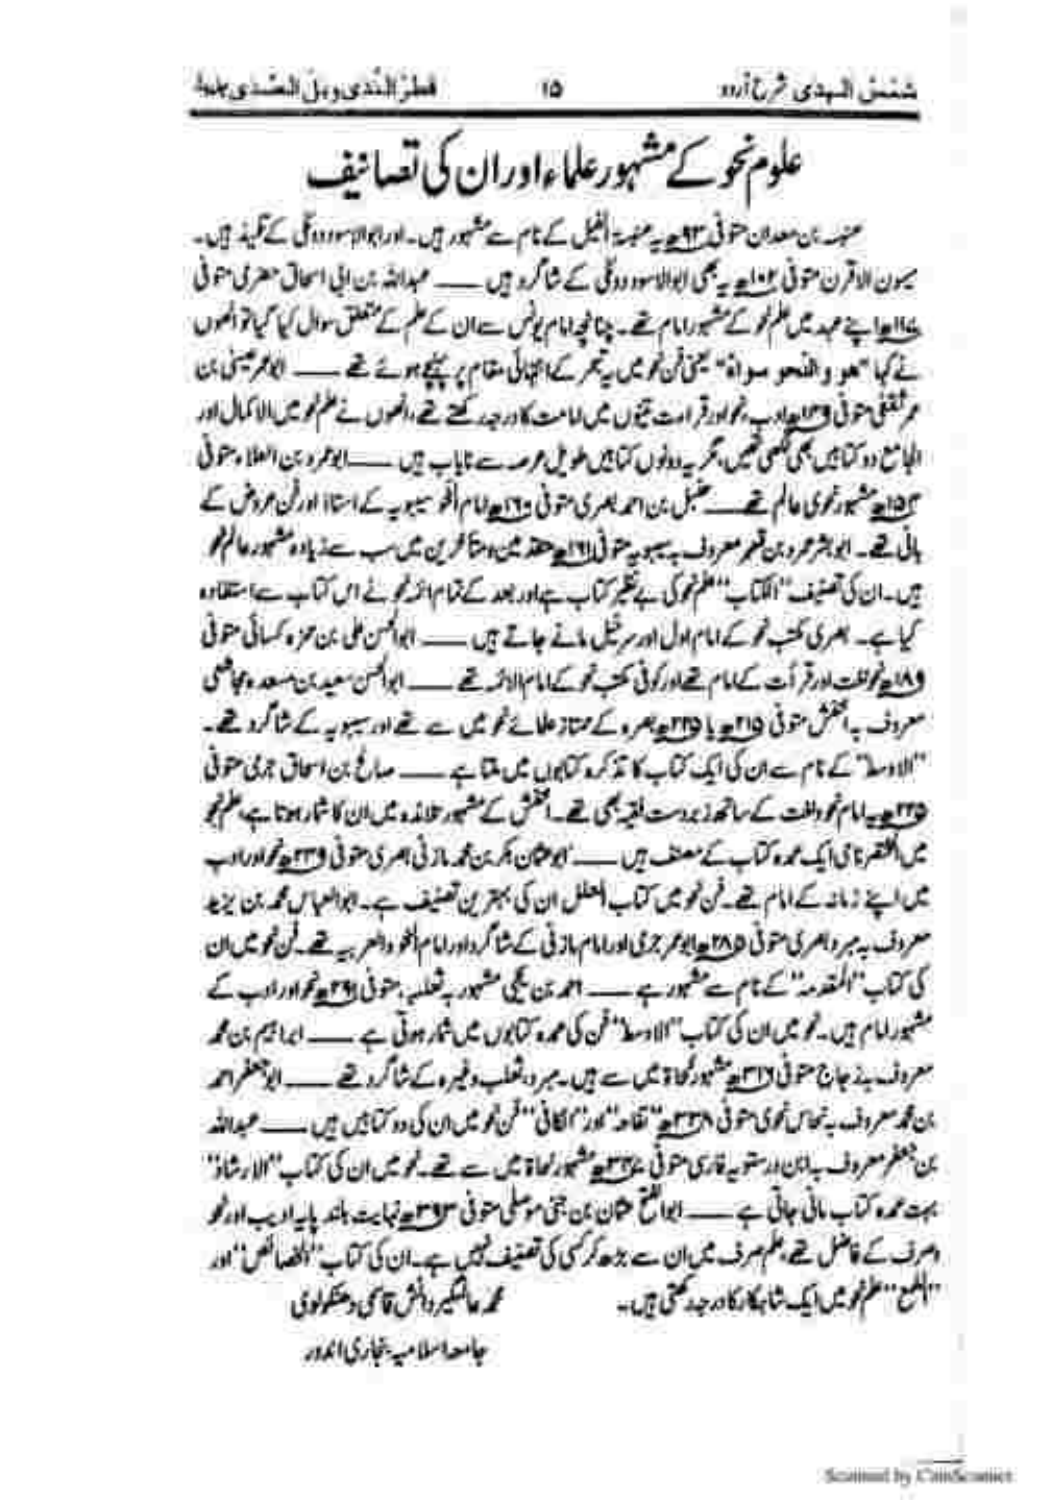 شمس الہدی شرح اردو ۱۵ قطر الندی وبل الصدی جلد۱
علوم نحو کے مشہور علماء اور ان کی تصانیف
عنبسہ بن معدان متوفی ۹۳ھ یہ عنبسۃ الفیل کے نام سے مشہور ہیں۔ اور ابوالاسود دؤلی کے تلمیذ ہیں۔
میمون الاقرن متوفی ۱۰۲ھ یہ بھی ابوالاسود دؤلی کے شاگرد ہیں ـــــ عبداللہ بن ابی اسحاق حضرمی متوفی
۱۱۷ھ اپنے عہد میں علم نحو کے مشہور امام تھے۔ چنانچہ امام یونس سے ان کے علم کے متعلق سوال کیا گیا تو انھوں
نے کہا "ھو والنحو سواء" یعنی فن نحو میں یہ تبحر کے انتہائی مقام پر پہنچے ہوئے تھے ـــــ ابوعمر عیسیٰ بن
عمر ثقفی متوفی ۱۴۹ھ ادب، نحو اور قراءت تینوں میں امامت کا درجہ رکھتے تھے، انھوں نے علم نحو میں الاکمال اور
الجامع دو کتابیں بھی لکھی تھیں، مگر یہ دونوں کتابیں طویل عرصہ سے نایاب ہیں ـــــ ابوعمرو بن العلاء متوفی
۱۵۴ھ مشہور نحوی عالم تھے ـــــ خلیل بن احمد بصری متوفی ۱۶۰ھ امام النحو سیبویہ کے استاذ اور فن عروض کے
بانی تھے۔ ابوبشر عمرو بن قنبر معروف بہ سیبویہ متوفی ۱۶۱ھ متقدمین و متأخرین میں سب سے زیادہ مشہور عالم نحو
ہیں۔ ان کی تصنیف "الکتاب" علم نحو کی بے نظیر کتاب ہے اور بعد کے تمام ائمہ نحو نے اس کتاب سے استفادہ
کیا ہے۔ بصری مکتب نحو کے امام اول اور سرخیل مانے جاتے ہیں ـــــ ابوالحسن علی بن حمزہ کسائی متوفی
۱۸۹ھ نحو لغت اور قرأت کے امام تھے اور کوفی مکتب نحو کے امام الائمہ تھے ـــــ ابوالحسن سعید بن مسعدہ مجاشعی
معروف بہ اخفش متوفی ۲۱۵ھ یا ۲۲۵ھ بصرہ کے ممتاز علمائے نحو میں سے تھے اور سیبویہ کے شاگرد تھے۔
"الاوسط" کے نام سے ان کی ایک کتاب کا تذکرہ کتابوں میں ملتا ہے ـــــ صالح بن اسحاق جرمی متوفی
۲۲۵ھ یہ امام نحو ولغت کے ساتھ زبردست فقیہ بھی تھے۔ اخفش کے مشہور تلامذہ میں ان کا شمار ہوتا ہے، علم نحو
میں المختصر نامی ایک عمدہ کتاب کے مصنف ہیں ـــــ ابوعثمان بکر بن محمد مازنی بصری متوفی ۲۳۶ھ نحو اور ادب
میں اپنے زمانہ کے امام تھے۔ فن نحو میں کتاب العلل ان کی بہترین تصنیف ہے۔ ابوالعباس محمد بن یزید
معروف بہ مبرد بصری متوفی ۲۸۵ھ ابوعمر جرمی اور امام مازنی کے شاگرد اور امام النحو والعربیہ تھے۔ فن نحو میں ان
کی کتاب "المقدمہ" کے نام سے مشہور ہے ـــــ احمد بن یحییٰ مشہور بہ ثعلب، متوفی ۲۹۱ھ نحو اور ادب کے
مشہور امام ہیں۔ نحو میں ان کی کتاب "الاوسط" فن کی عمدہ کتابوں میں شمار ہوتی ہے ـــــ ابراہیم بن محمد
معروف بہ زجاج متوفی ۳۱۶ھ مشہور نحاۃ میں سے ہیں۔ مبرد، ثعلب وغیرہ کے شاگرد تھے ـــــ ابوجعفر احمد
بن محمد معروف بہ نحاس نحوی متوفی ۳۳۸ھ "تفاحہ" اور "الکافی" فن نحو میں ان کی دو کتابیں ہیں ـــــ عبداللہ
بن جعفر معروف بہ ابن درستویہ فارسی متوفی ۳۴۷ھ مشہور نحاۃ میں سے تھے۔ نحو میں ان کی کتاب "الارشاد"
بہت عمدہ کتاب مانی جاتی ہے ـــــ ابوالفتح عثمان بن جنی موصلی متوفی ۳۹۳ھ نہایت بلند پایہ ادیب اور نحو
وصرف کے فاضل تھے، علم صرف میں ان سے بڑھ کر کسی کی تصنیف نہیں ہے۔ ان کی کتاب "الخصائص" اور
"اللمع" علم نحو میں ایک شاہکار کا درجہ رکھتی ہیں۔ محمد عالمگیر دانش قاسمی دھنکولوی
جامعہ اسلامیہ بنجاری اندور
Scanned by CamScanner